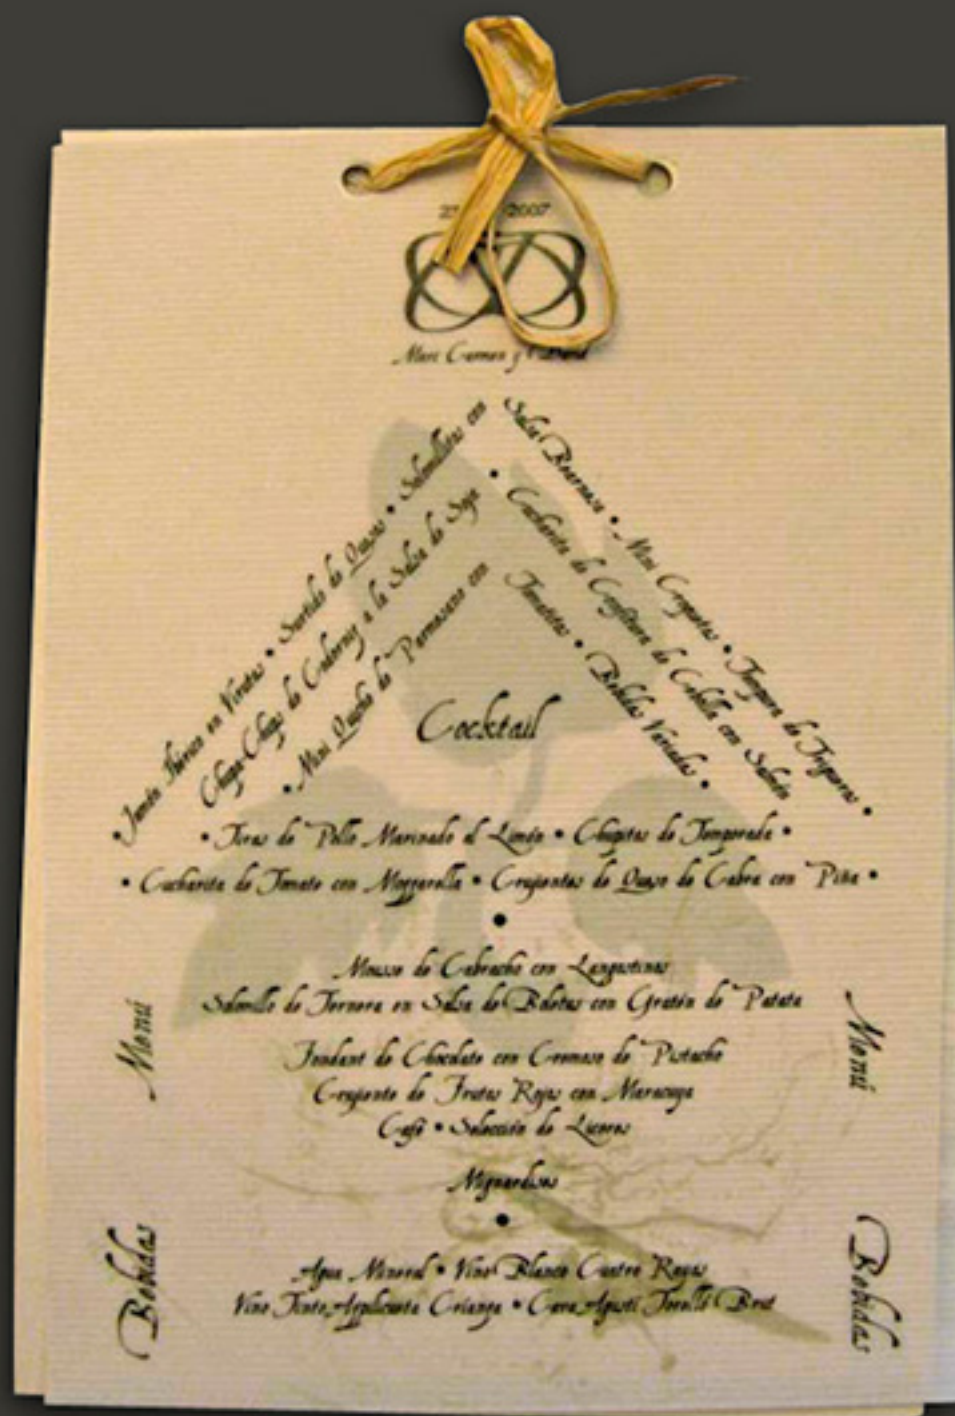 2007
Mari Carmen y David
• Jamón Ibérico en Virutas • Surtido de Quesos • Solomillitos con
Salsa Bearnesa • Mini Croquetas • Tempura de Trigueros •
Chupa-Chups de Codorniz a la Salsa de Soja
• Cucharita de Confitura de Cebolla con Salmón
• Mini Quiche de Parmesano con
Tomatitos • Bebidas Variadas •
Cocktail
• Tiras de Pollo Marinado al Limón • Chupitos de Temporada •
• Cucharita de Tomate con Mozzarella • Crujientes de Queso de Cabra con Piña •
•
Menú
Mousse de Cabracho con Langostinos
Solomillo de Ternera en Salsa de Boletus con Gratén de Patata
Fondant de Chocolate con Cremoso de Pistacho
Crujiente de Frutos Rojos con Maracuya
Café • Selección de Licores
Mignardises
Menú
•
Bebidas
Agua Mineral • Vino Blanco Cuatro Rayas
Vino Tinto Azpilicueta Crianza • Cava Agustí Torelló Brut
Bebidas